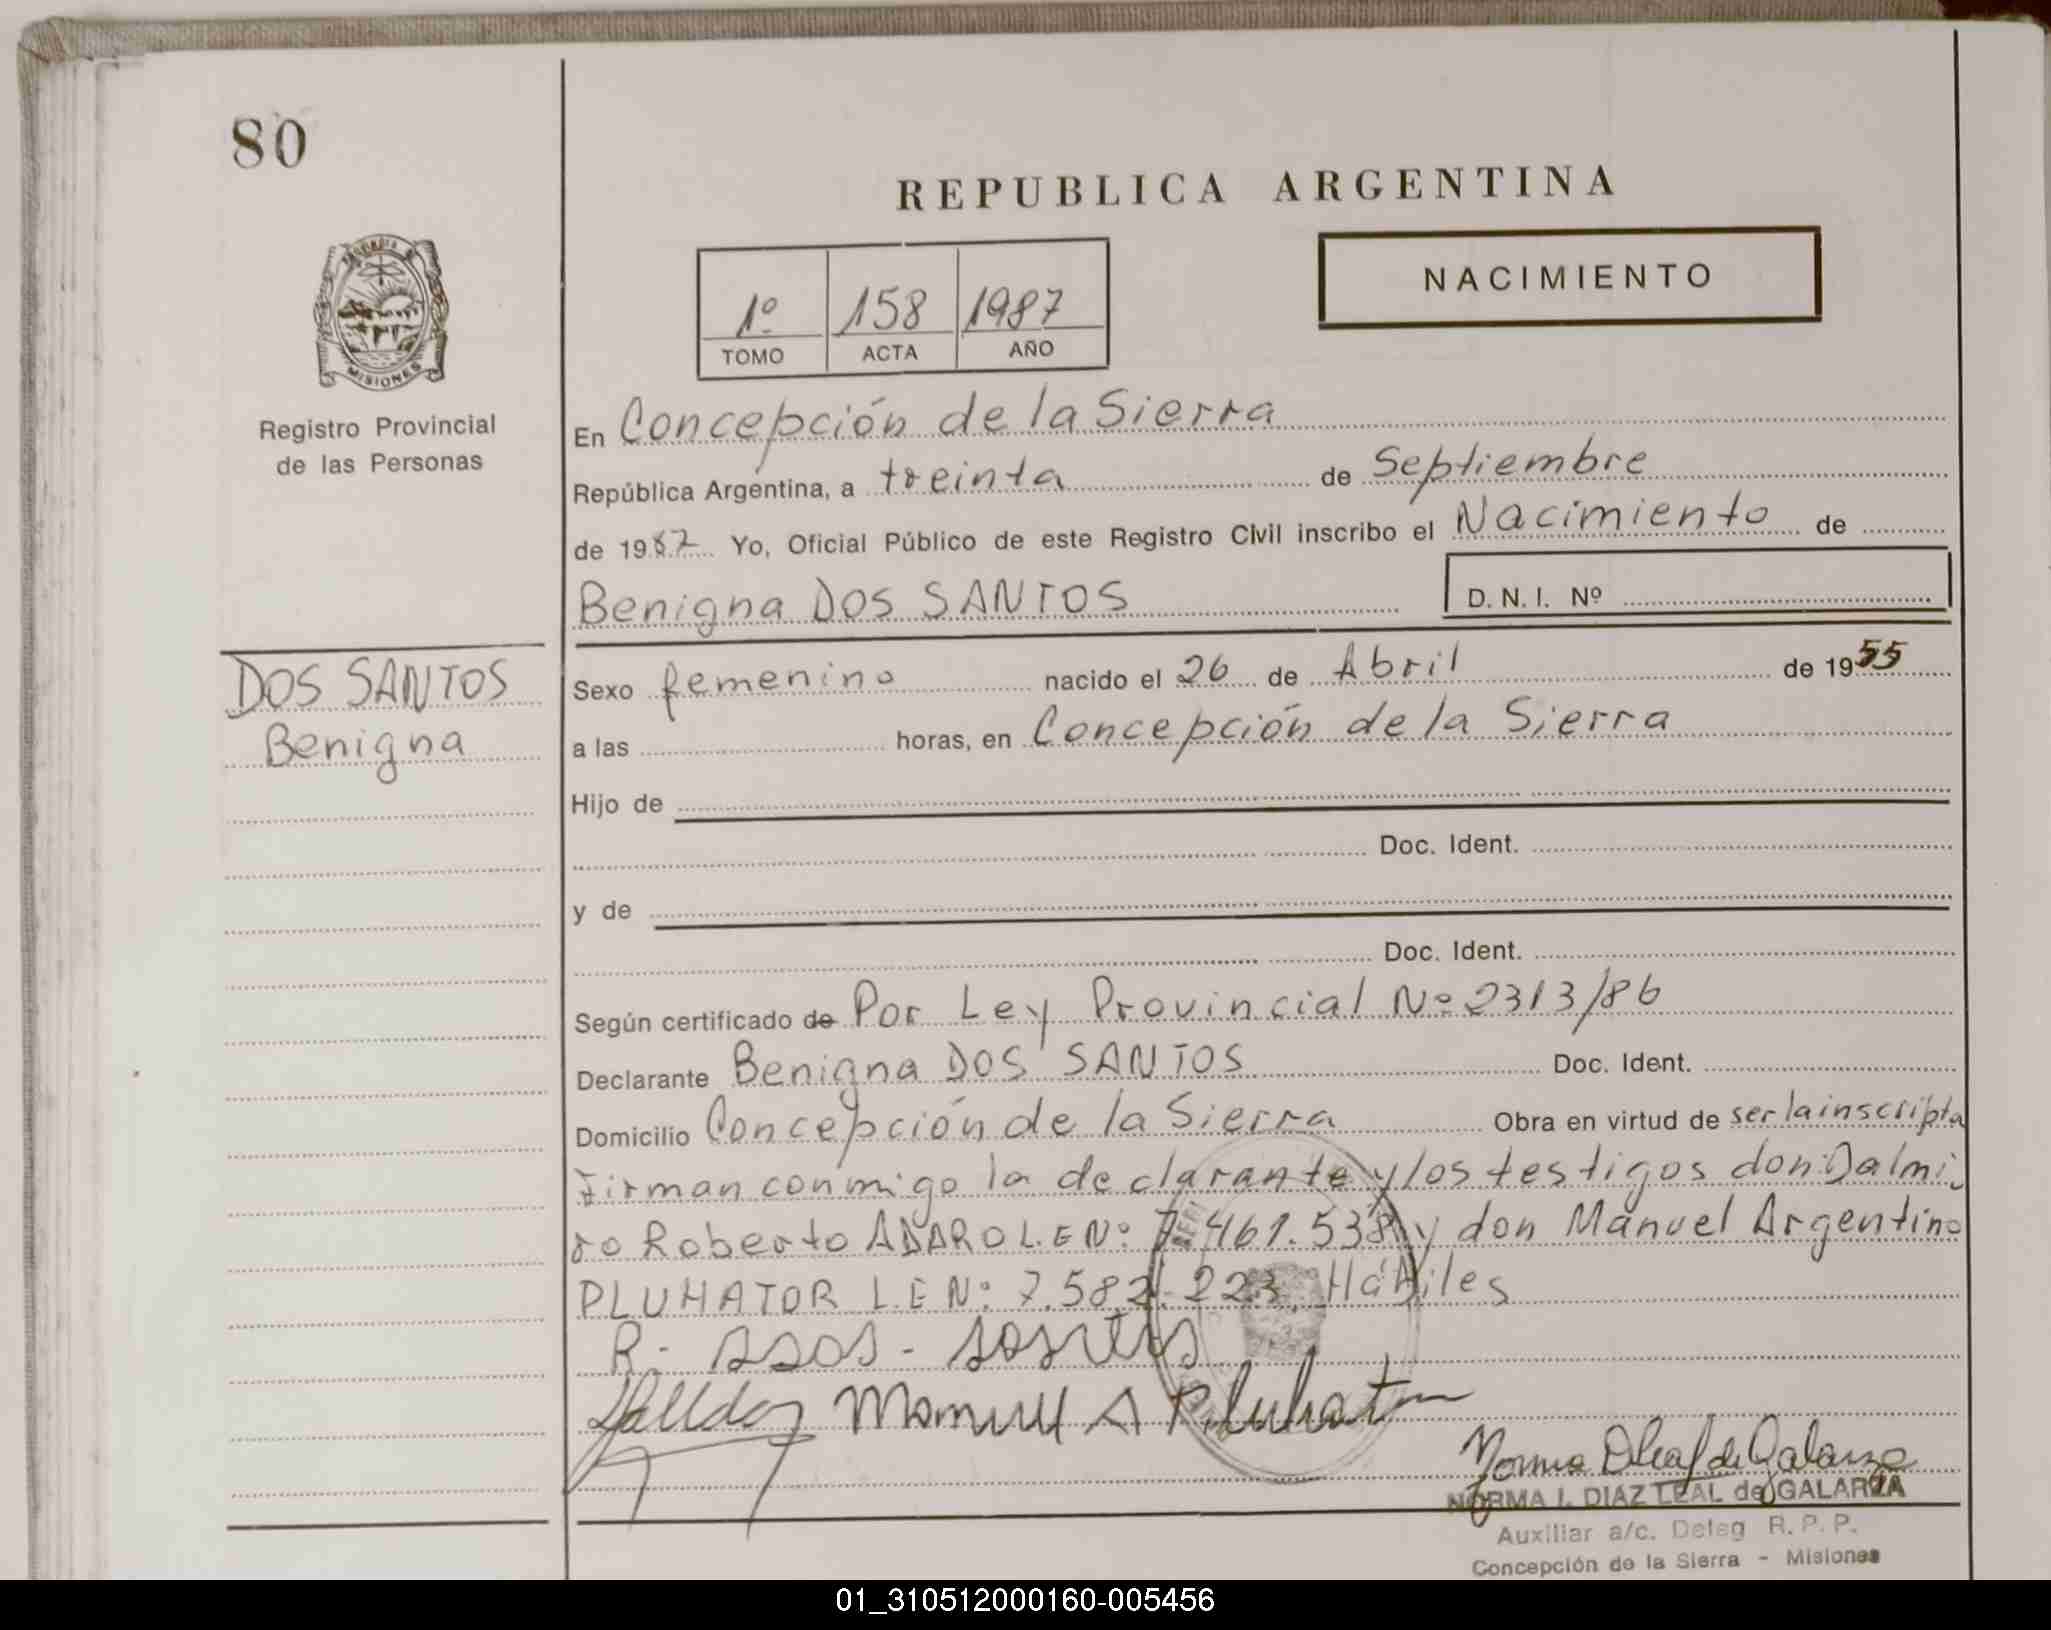 80
REPUBLICA ARGENTINA
PROVINCIA DE
MISIONES
Registro Provincial
de las Personas
1º 158 1987
TOMO ACTA AÑO
NACIMIENTO
En Concepción de la Sierra
República Argentina, a treinta de Septiembre
de 1987 Yo, Oficial Público de este Registro Civil inscribo el Nacimiento de
Benigna DOS SANTOS D. N. I. Nº
DOS SANTOS
Benigna
Sexo femenino nacido el 26 de Abril de 1955
a las horas, en Concepción de la Sierra
Hijo de
Doc. Ident.
y de
Doc. Ident.
Según certificado de Por Ley Provincial Nº 2313/86
Declarante Benigna DOS SANTOS Doc. Ident.
Domicilio Concepción de la Sierra Obra en virtud de ser la inscripta
Firman conmigo la declarante y los testigos don: Dalmi
ro Roberto ADARO L.E Nº: 7.461.538 y don Manuel Argentino
PLUHATOR L.E Nº: 7.582.223. Hábiles
Manuel A Pluhator
Norma D Leal de Galarza
NORMA I. DIAZ LEAL de GALARZA
Auxiliar a/c. Deleg R. P. P.
Concepción de la Sierra - Misiones
01_310512000160-005456